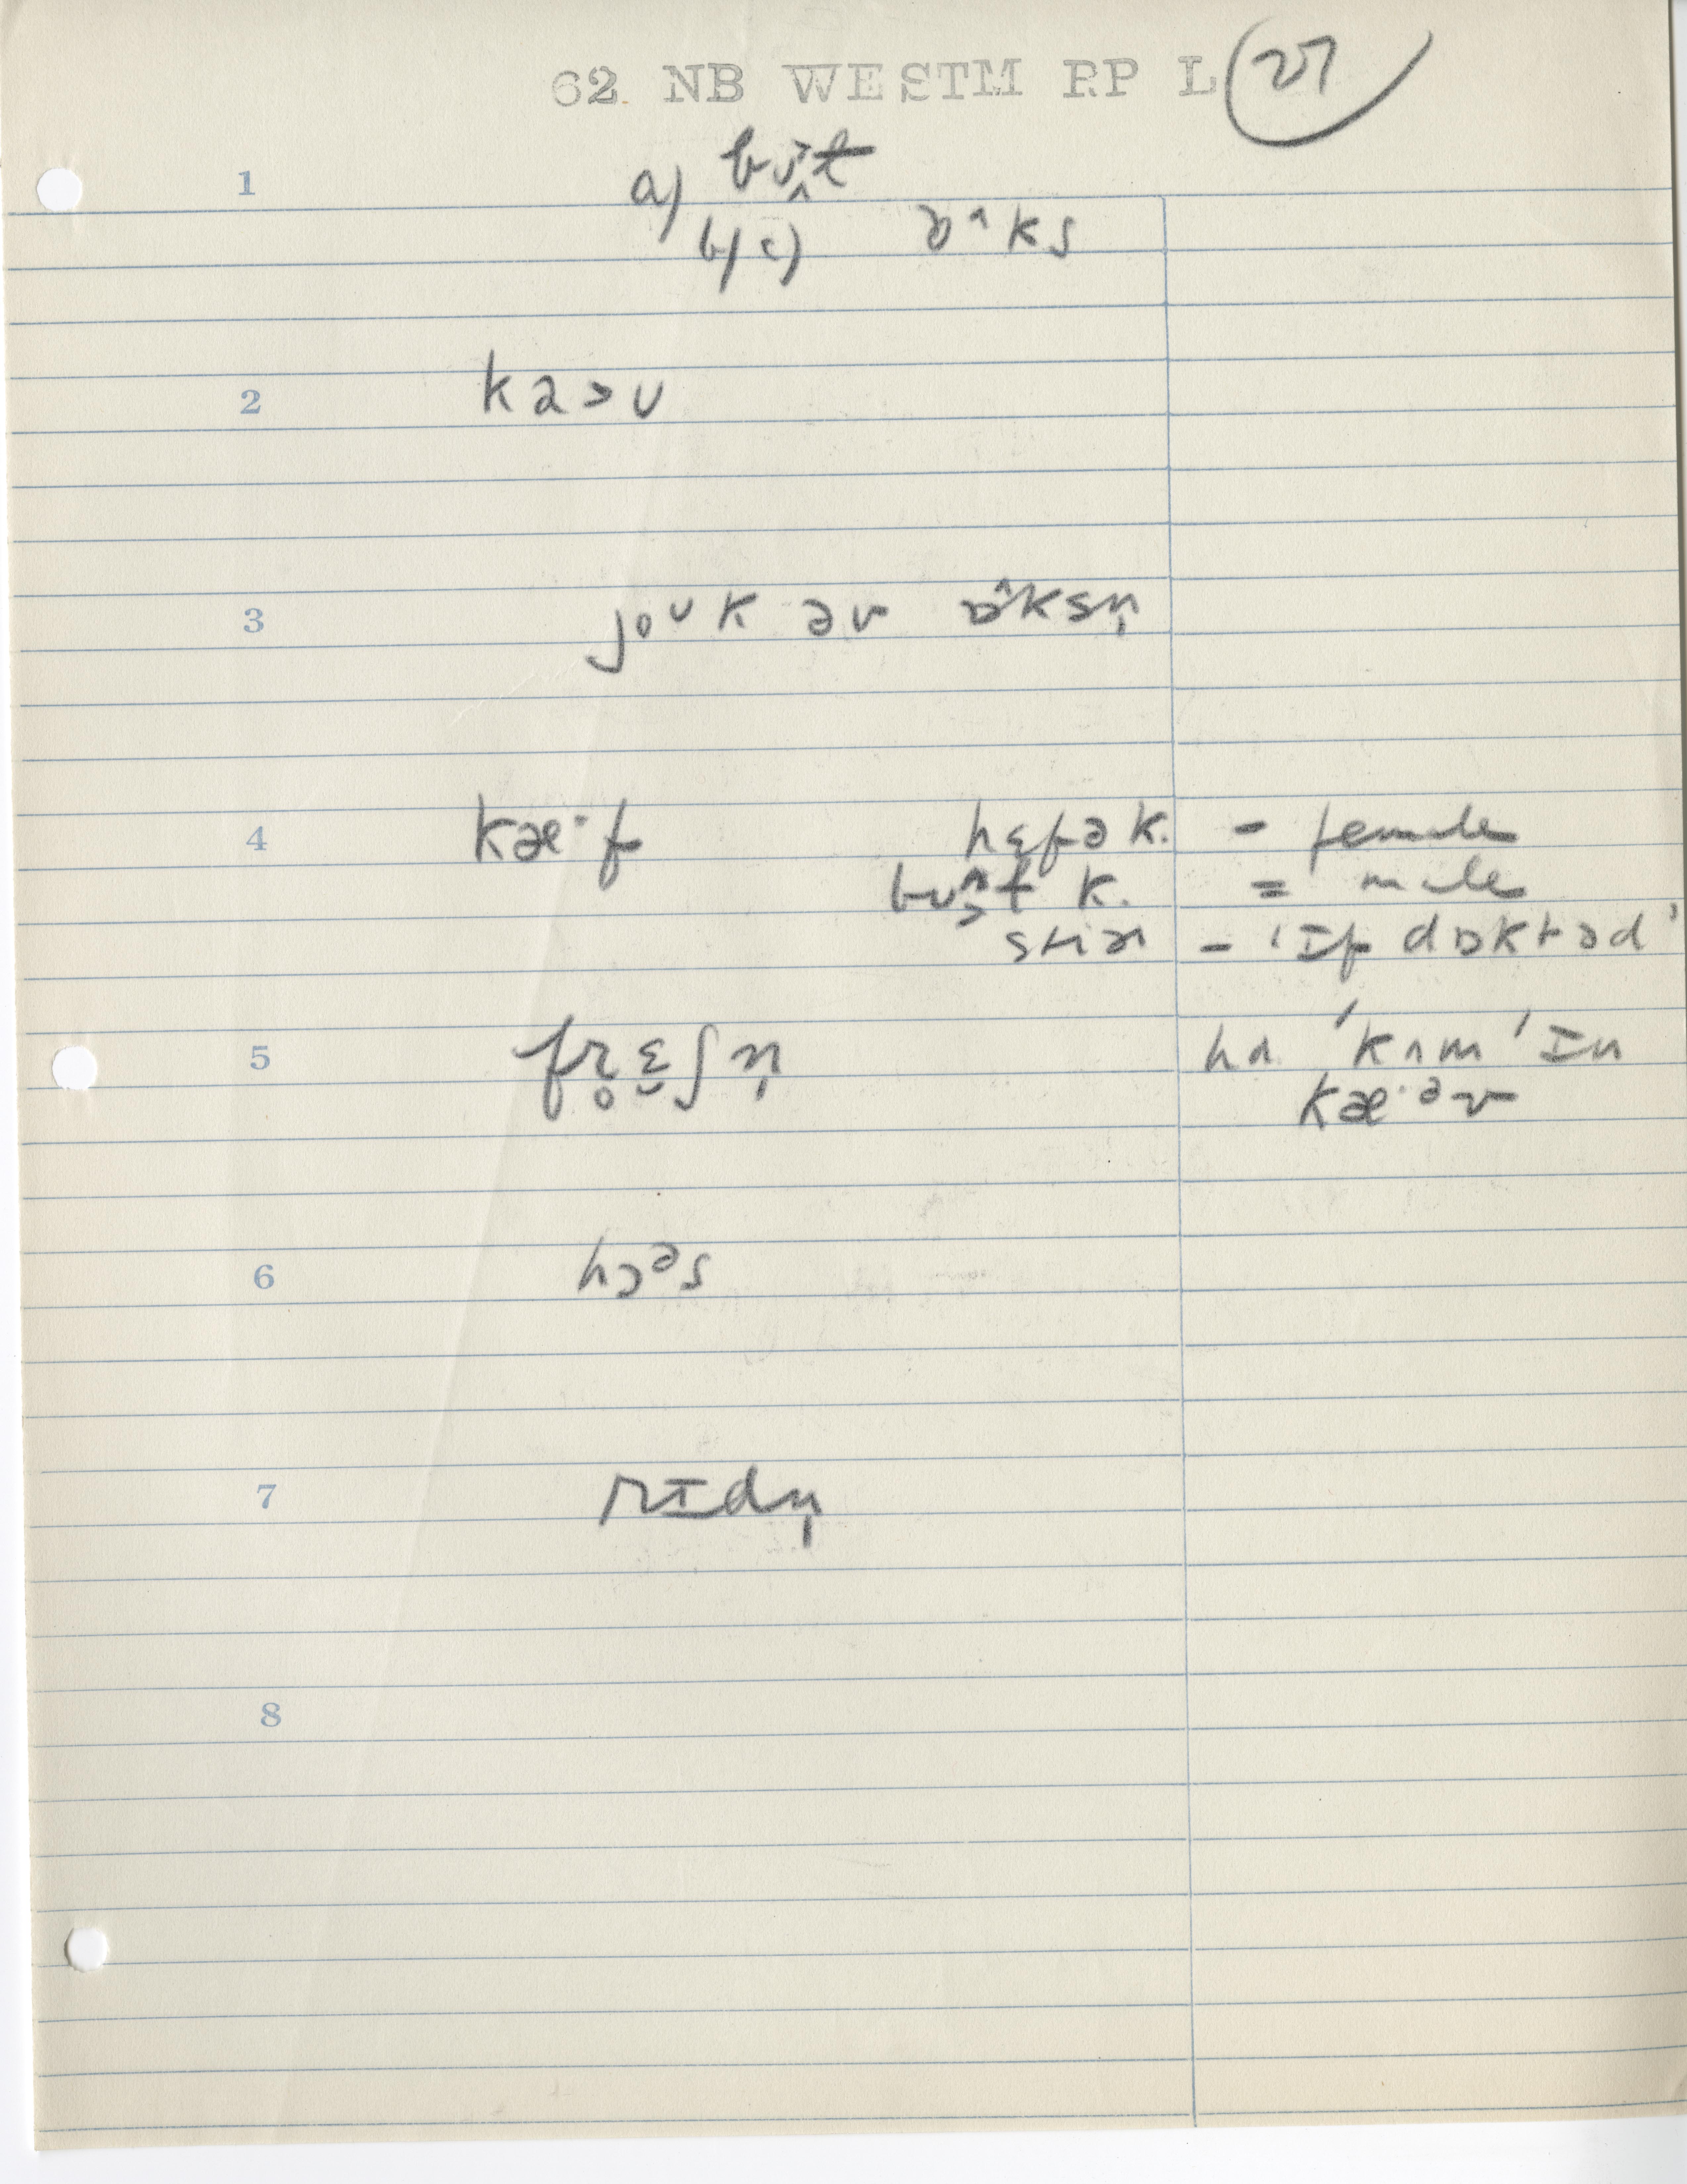 62 NB WESTM RP L 27
1 a) bʊ̬̂ɫ
b) c) ɒ^ks
2 ka>ʊ
3 joᴜk əv ɒ^ksn̩
4 kæ·f hɛfə k. - female
bʊ̬̂ɫ k. = male
- 'ɪf dɒktəd'
5 fr̥ɛ̞ʃn̩ hɑ 'kʌm 'ɪn
kæ·əv
6 hɔəs
7 rɪdn̩
8